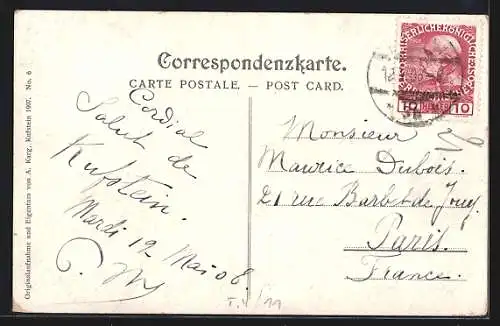 Correspondenzkarte.
CARTE POSTALE. — POST CARD.
Cordial
Salut de
Kufstein.
Mardi 12 Mai 08.
Monsieur
Maurice Dubois.
21 rue Barbet de Jouy.
Paris.
France.
Originalaufnahme und Eigentum von A. Karg, Kufstein 1907. No. 6
10 HELLER 10